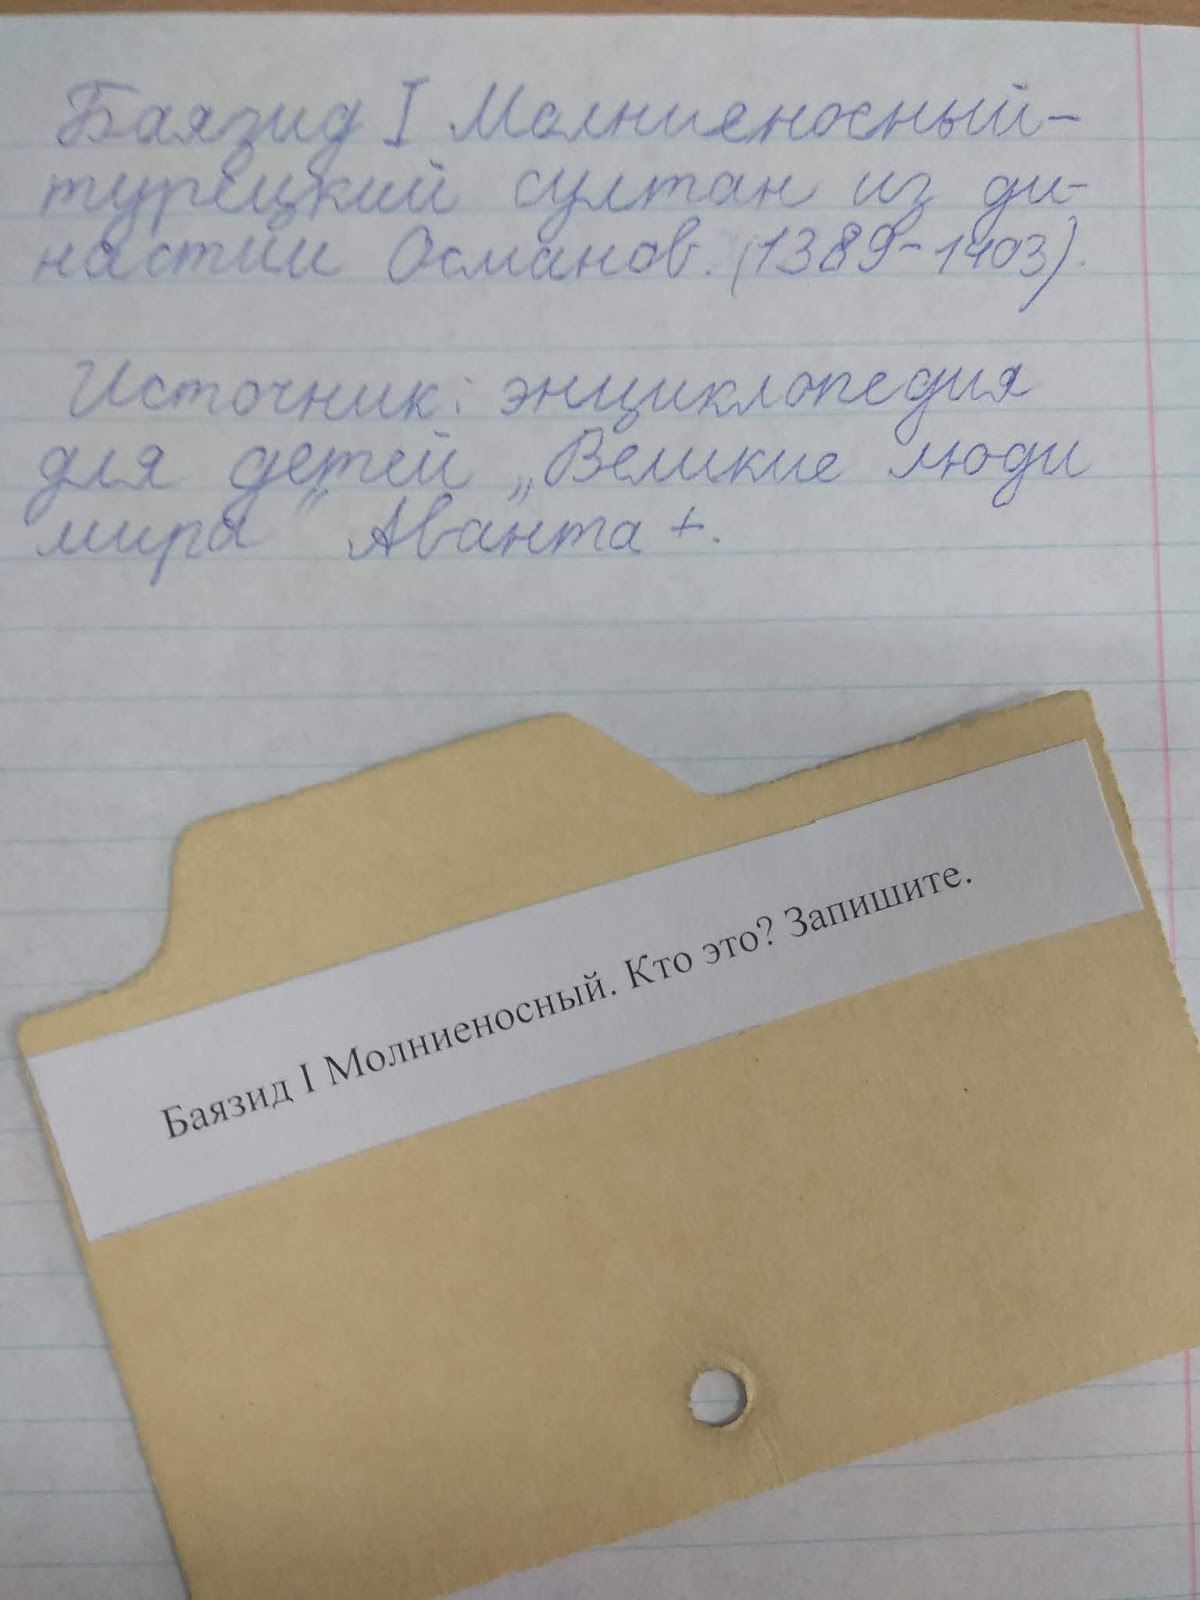 Баязид I Молниеносный-
турецкий султан из ди-
настии Османов. (1389-1403).
Источник: энциклопедия
для детей „Великие люди
мира" Аванта +.
Баязид I Молниеносный. Кто это? Запишите.